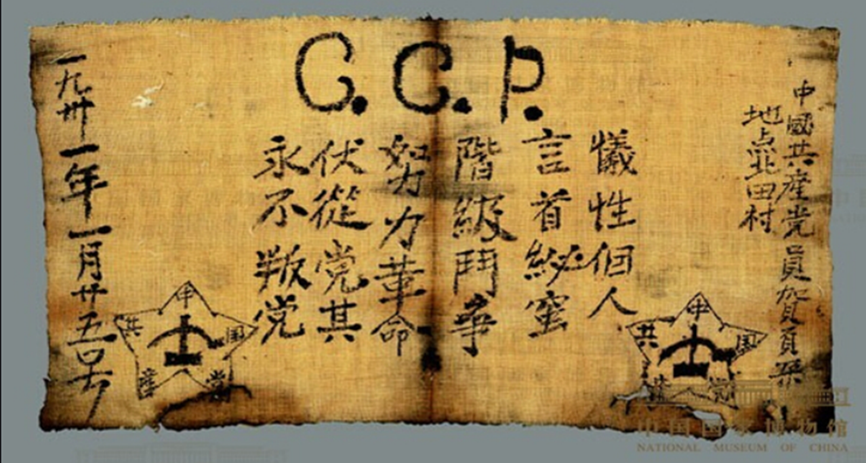 C.C.P.
中國共産党員賀頁朵
地点北田村
犠性個人
言首秘蜜
階級鬥争
努力革命
伏從党其
永不叛党
一九卅一年一月廿五号
中国共産党
中国共産党
中国国家博物館
NATIONAL MUSEUM OF CHINA